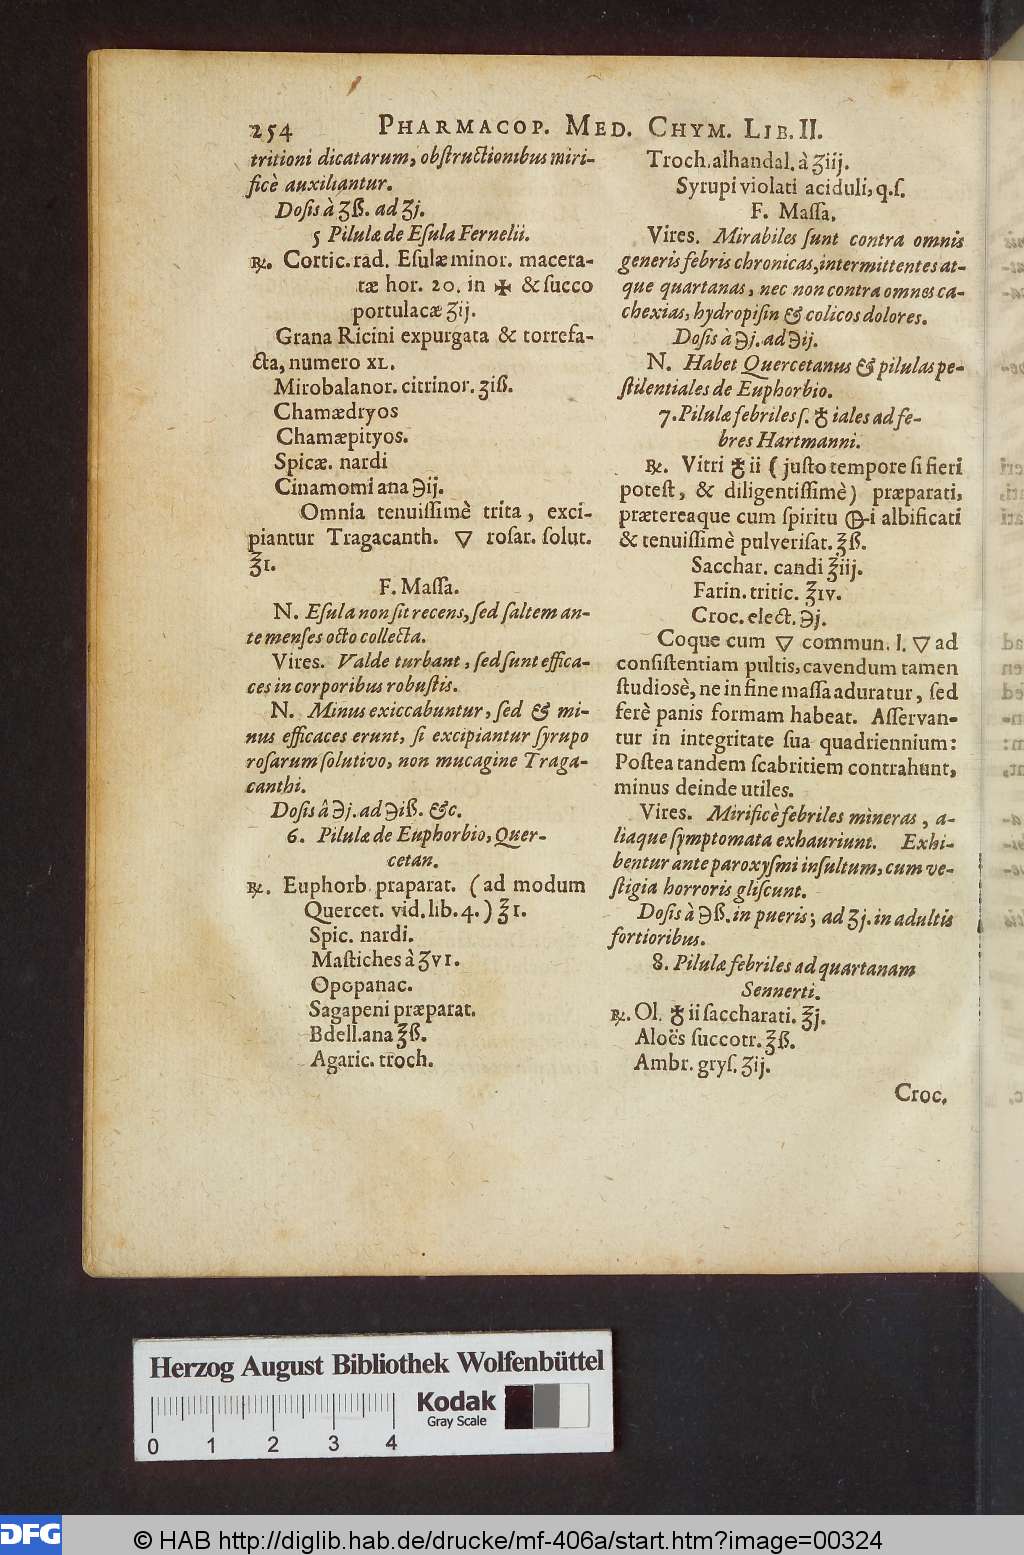 254 PHARMACOP. MED. CHYM. LIB. II.
tritioni dicatarum, obſtructionibus miri-
ficè auxiliantur.
Doſis à ʒß. ad ʒj.
5 Pilulæ de Eſula Fernelii.
℞. Cortic. rad. Eſulæ minor. macera-
tæ hor. 20. in ✠ & ſucco
portulacæ ʒij.
Grana Ricini expurgata & torrefa-
cta, numero XL.
Mirobalanor. citrinor. ʒiß.
Chamædryos
Chamæpityos.
Spicæ. nardi
Cinamomi ana ℈ij.
Omnia tenuiſſimè trita, exci-
piantur Tragacanth. 🜄 roſar. ſolut.
℥1.
F. Maſſa.
N. Eſula non ſit recens, ſed ſaltem an-
te menſes octo collecta.
Vires. Valde turbant, ſed ſunt effica-
ces in corporibus robuſtis.
N. Minus exiccabuntur, ſed & mi-
nus efficaces erunt, ſi excipiantur ſyrupo
roſarum ſolutivo, non mucagine Traga-
canthi.
Doſis â ℈j. ad ℈iß. &c.
6. Pilulæ de Euphorbio, Quer-
cetan.
℞. Euphorb. praparat. (ad modum
Quercet. vid. lib. 4.) ℥1.
Spic. nardi.
Maſtiches à ʒVI.
Opopanac.
Sagapeni præparat.
Bdell. ana ℥ß.
Agaric. troch.
Troch. alhandal. à ʒiij.
Syrupi violati aciduli, q.ſ.
F. Maſſa.
Vires. Mirabiles ſunt contra omnis
generis febris chronicas, intermittentes at-
que quartanas, nec non contra omnes ca-
chexias, hydropiſin & colicos dolores.
Doſis à ℈j. ad ℈ij.
N. Habet Quercetanus & pilulas pe-
ſtilentiales de Euphorbio.
7. Pilulæ febriles ſ. ♁iales ad fe-
bres Hartmanni.
℞. Vitri ♁ii (juſto tempore ſi fieri
poteſt, & diligentiſſimè) præparati,
prætereaque cum ſpiritu 🜖-i albificati
& tenuiſſimè pulveriſat. ℥ß.
Sacchar. candi ℥iij.
Farin. tritic. ℥IV.
Croc. elect. ℈j.
Coque cum 🜄 commun. ſ. 🜄 ad
conſiſtentiam pultis, cavendum tamen
ſtudiosè, ne in fine maſſa aduratur, ſed
ferè panis formam habeat. Aſſervan-
tur in integritate ſua quadriennium:
Poſtea tandem ſcabritiem contrahunt,
minus deinde utiles.
Vires. Mirificè febriles mineras, a-
liaque ſymptomata exhauriunt. Exhi-
bentur ante paroxyſmi inſultum, cum ve-
ſtigia horroris gliſcunt.
Doſis à ℈ß. in pueris; ad ʒj. in adultis
fortioribus.
8. Pilulæ febriles ad quartanam
Sennerti.
℞. Ol. ♁ii ſaccharati. ℥j.
Aloës ſuccotr. ℥ß.
Ambr. gryſ. ʒij.
Croc.
Herzog August Bibliothek Wolfenbüttel
0 1 2 3 4
Kodak
Gray Scale
DFG
© HAB http://diglib.hab.de/drucke/mf-406a/start.htm?image=00324